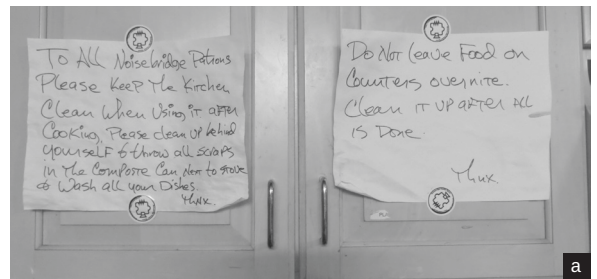 To All Noisebridge Patrons
Please Keep The Kitchen
Clean when Using it after
Cooking, Please clean up behind
yourself & throw all scraps
in The Composte Can Next to stove
& Wash all your Dishes.
Thnx.
Do Not leave Food on
Counters overnite.
Clean it up after All
is Done.
Thnx.
a